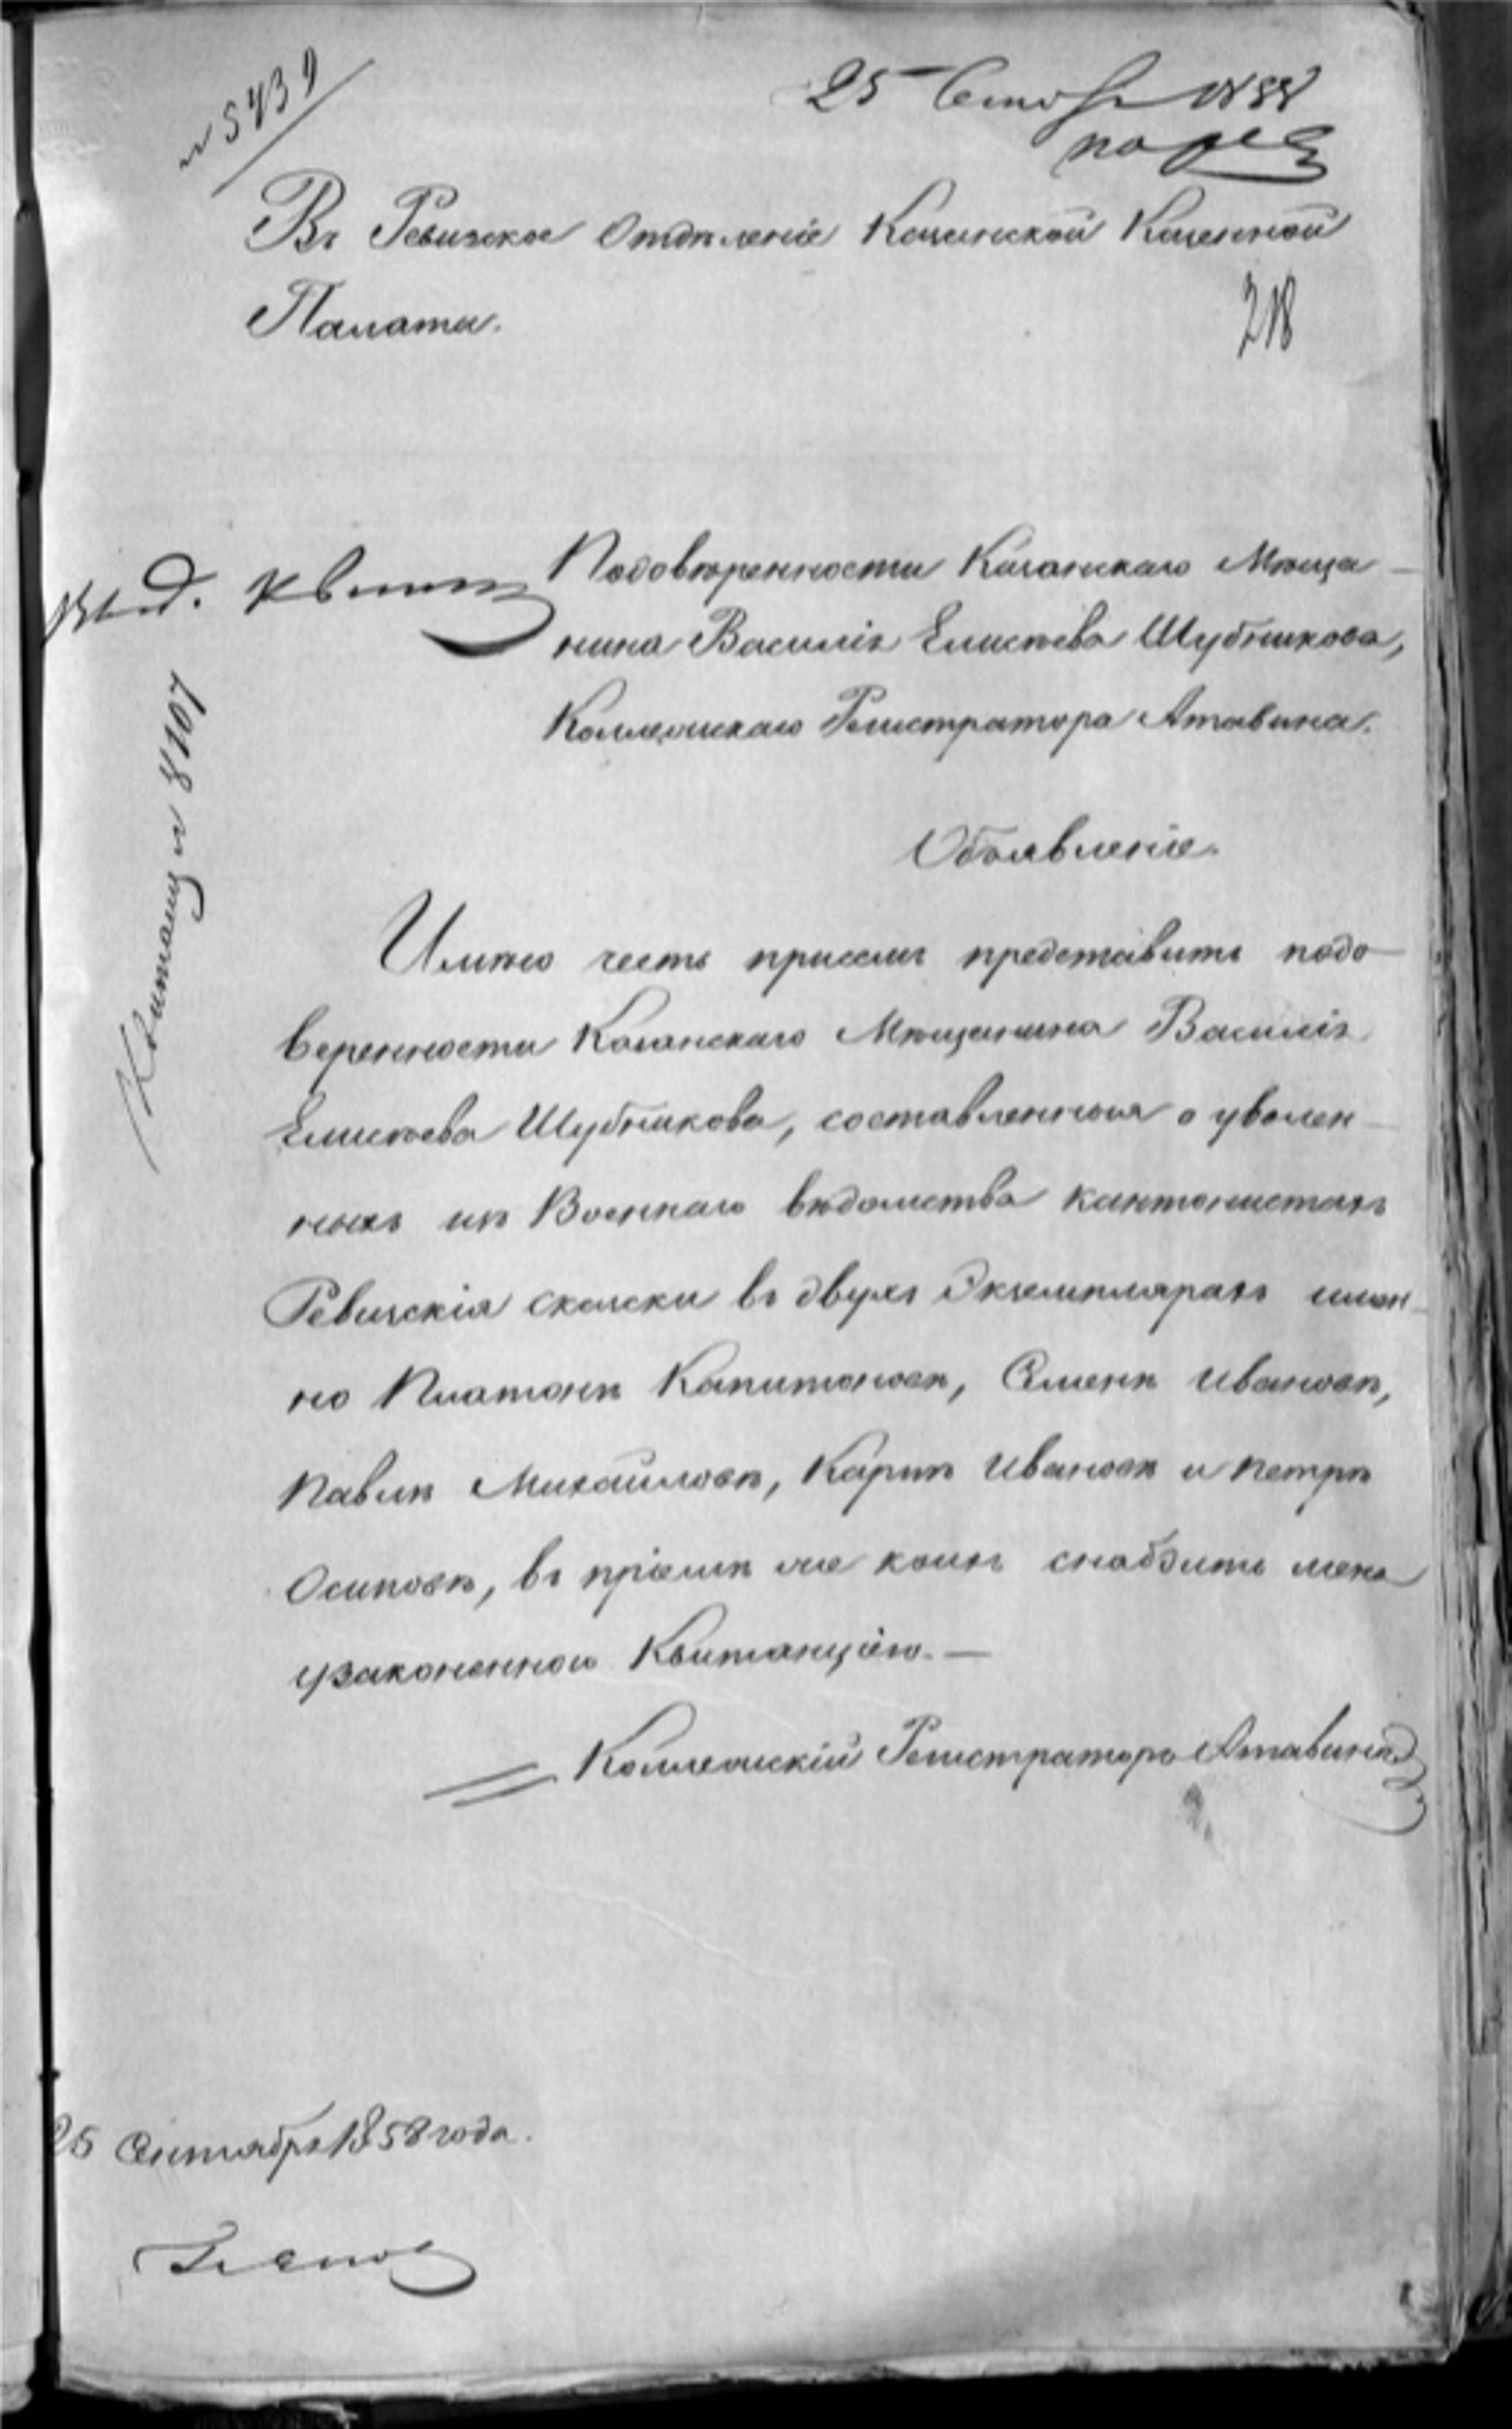 № 5439
25 Сентяб 1858
Въ Ревизское Отдѣленіе Казанской Казенной
Палаты.
218
Подовѣренности Казанскаго Мѣща-
нина Василія Елисѣева Шубникова,
Коллежскаго Регистратора Атавина.
Выд. квит
Квитанц № 8107
Объявленіе.
Имѣю честь присемъ представить подо-
веренности Казанскаго Мѣщанина Василія
Елисѣева Шубникова, составленныя о уволен-
ныхъ изъ Военнаго вѣдомства кантонистахъ
Ревизскія сказки въ двухъ Экземплярахъ имян-
но Платонѣ Капитоновѣ, Семенѣ Ивановѣ,
Павлѣ Михайловѣ, Карпѣ Ивановѣ и Петрѣ
Осиповѣ, въ пріемѣ же коихъ снабдить меня
узаконенною Квитанціею.—
Коллежскій Регистраторъ Атавинъ
25 Сентября 1858 года.